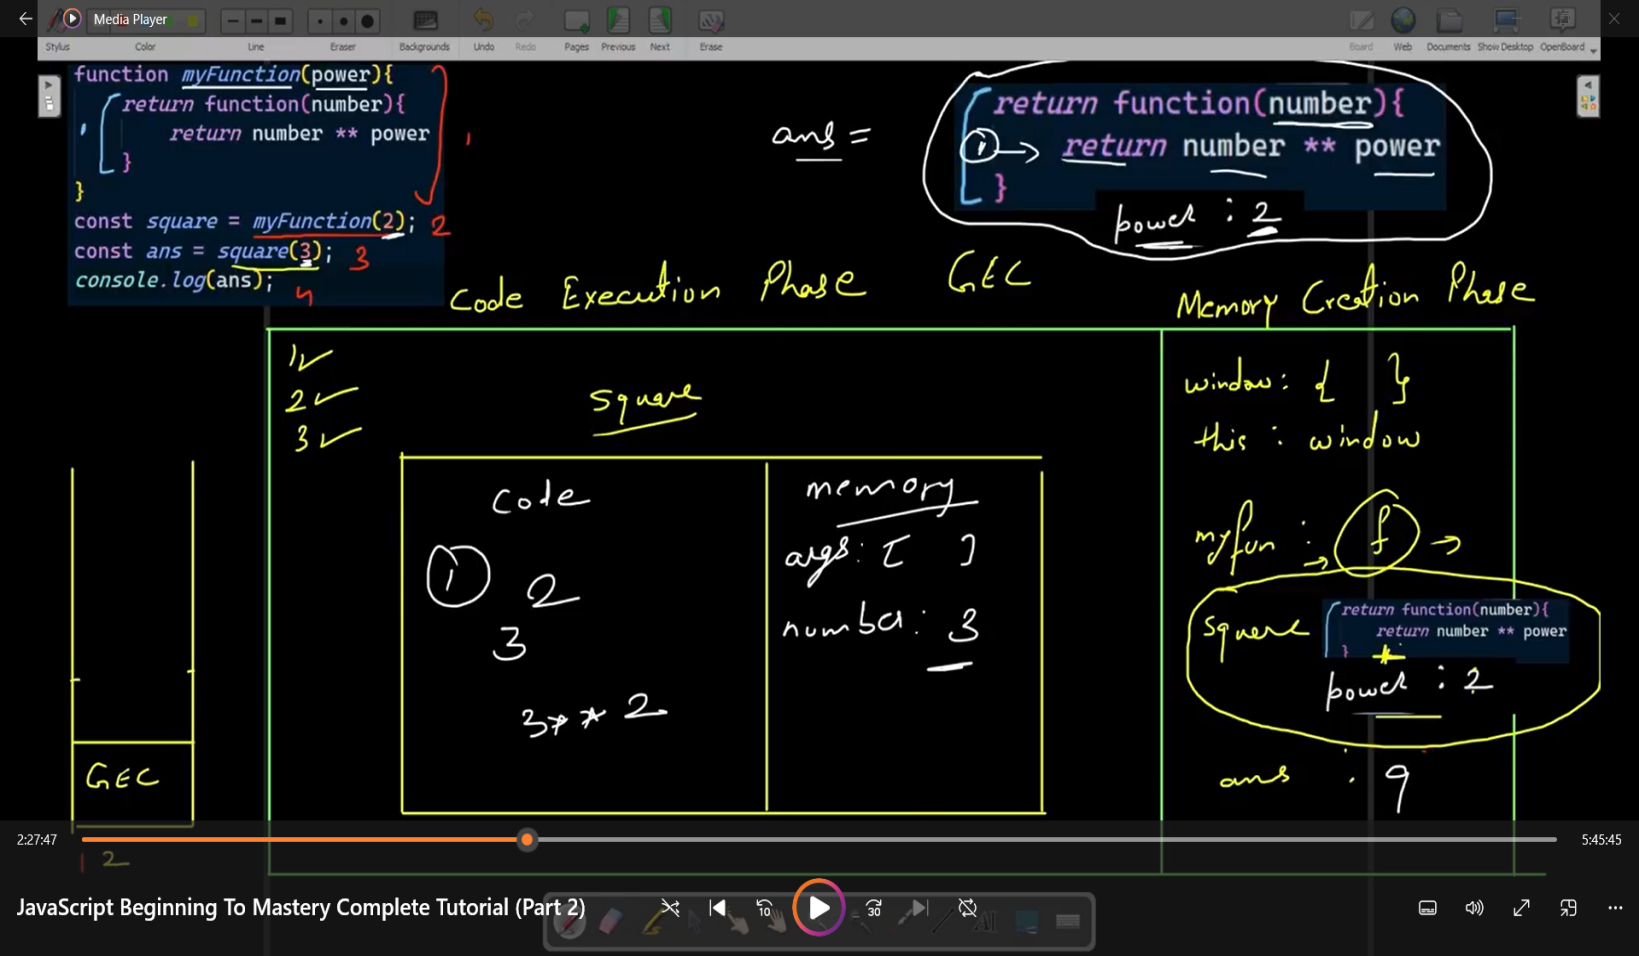 Media Player
Stylus Color Line Eraser Backgrounds Undo Redo Pages Previous Next Erase Board Web Documents Show Desktop OpenBoard
function myFunction(power){
return function(number){
return number ** power
}
}
const square = myFunction(2); 2
const ans = square(3); 3
console.log(ans); 4
1
ans =
return function(number){
1 → return number ** power
}
power : 2
Code Execution Phase GEC Memory Creation Phase
1 ✓
2 ✓
3 ✓
square
code
1 2
3
3** 2
memory
args: [ ]
number: 3
window: { }
this : window
myfun : → f →
square
return function(number){
return number ** power
}
power : 2
ans : 9
GEC
2:27:47
5:45:45
1 2
JavaScript Beginning To Mastery Complete Tutorial (Part 2)
10
30
AI